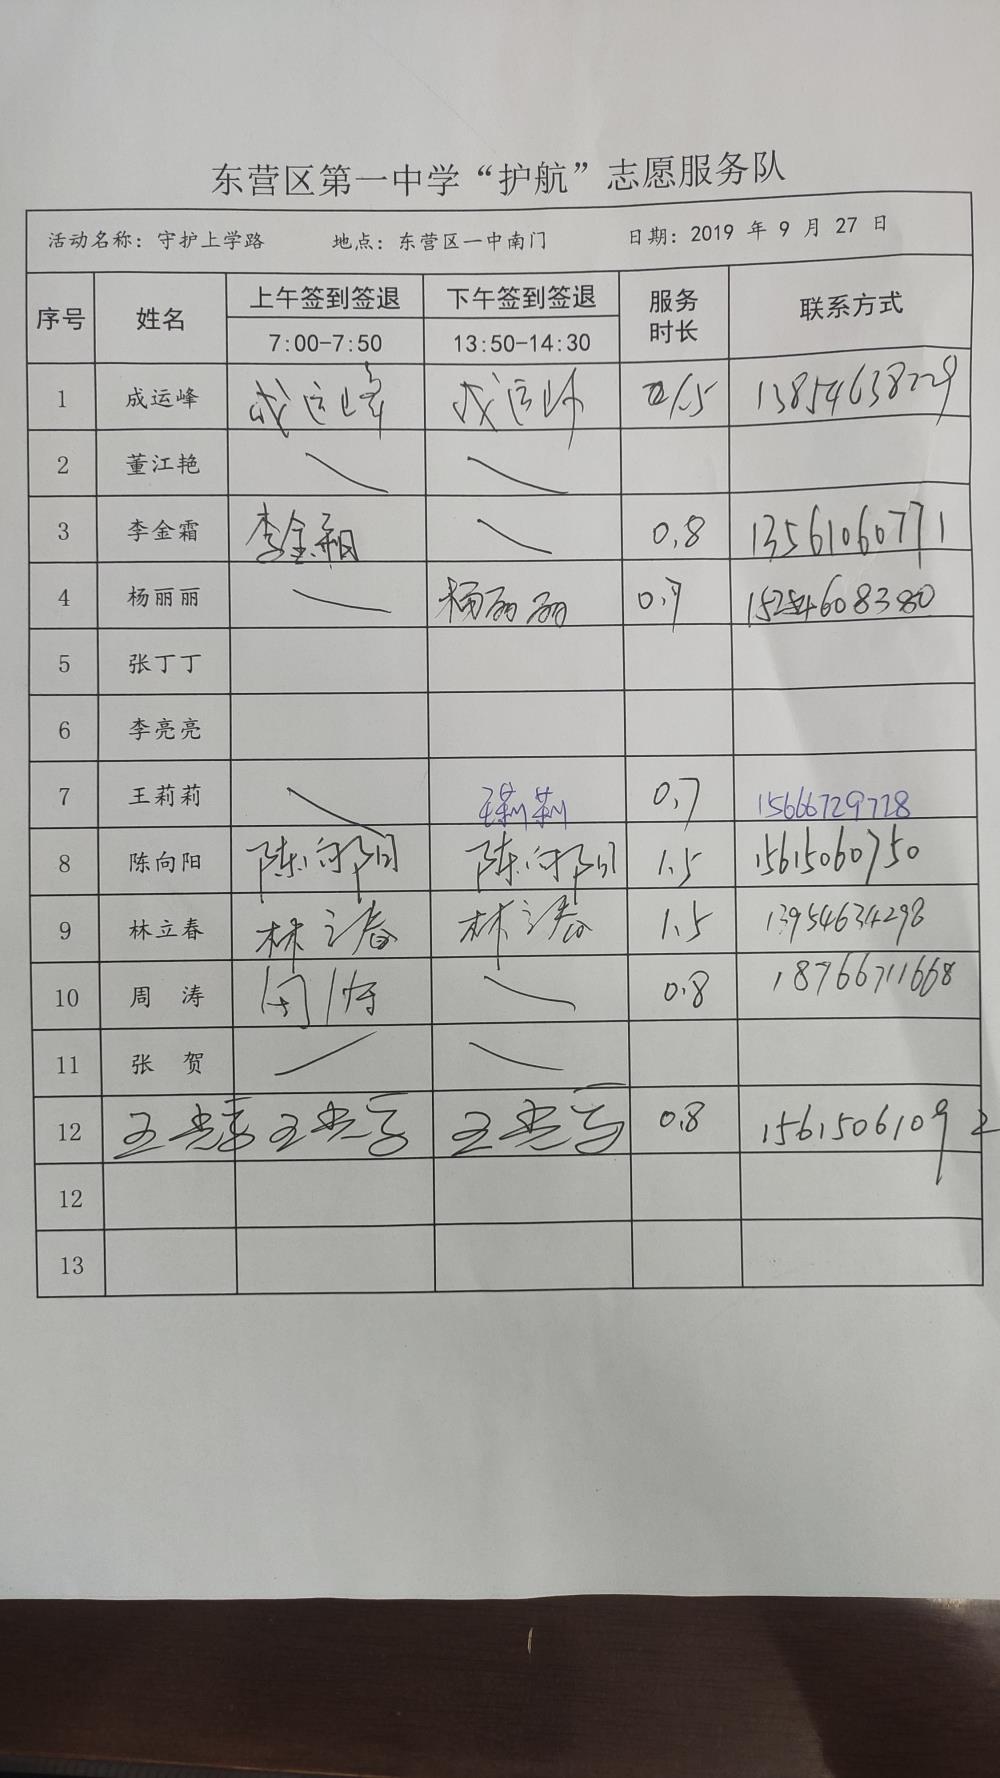 东营区第一中学“护航”志愿服务队
活动名称：守护上学路 地点：东营区一中南门 日期：2019 年 9 月 27 日
序号 姓名 上午签到签退 下午签到签退 服务时长 联系方式
7:00-7:50 13:50-14:30
1 成运峰 成运峰 成运峰 1.5 13854638229
2 董江艳
3 李金霜 李金霜 0.8 13561060771
4 杨丽丽 杨丽丽 0.7 15254608380
5 张丁丁
6 李亮亮
7 王莉莉 王莉莉 0.7 15666729728
8 陈向阳 陈向阳 陈向阳 1.5 15615060750
9 林立春 林立春 林立春 1.5 13954634298
10 周 涛 周涛 0.8 18766711668
11 张 贺
12 0.8 15615061092
12
13